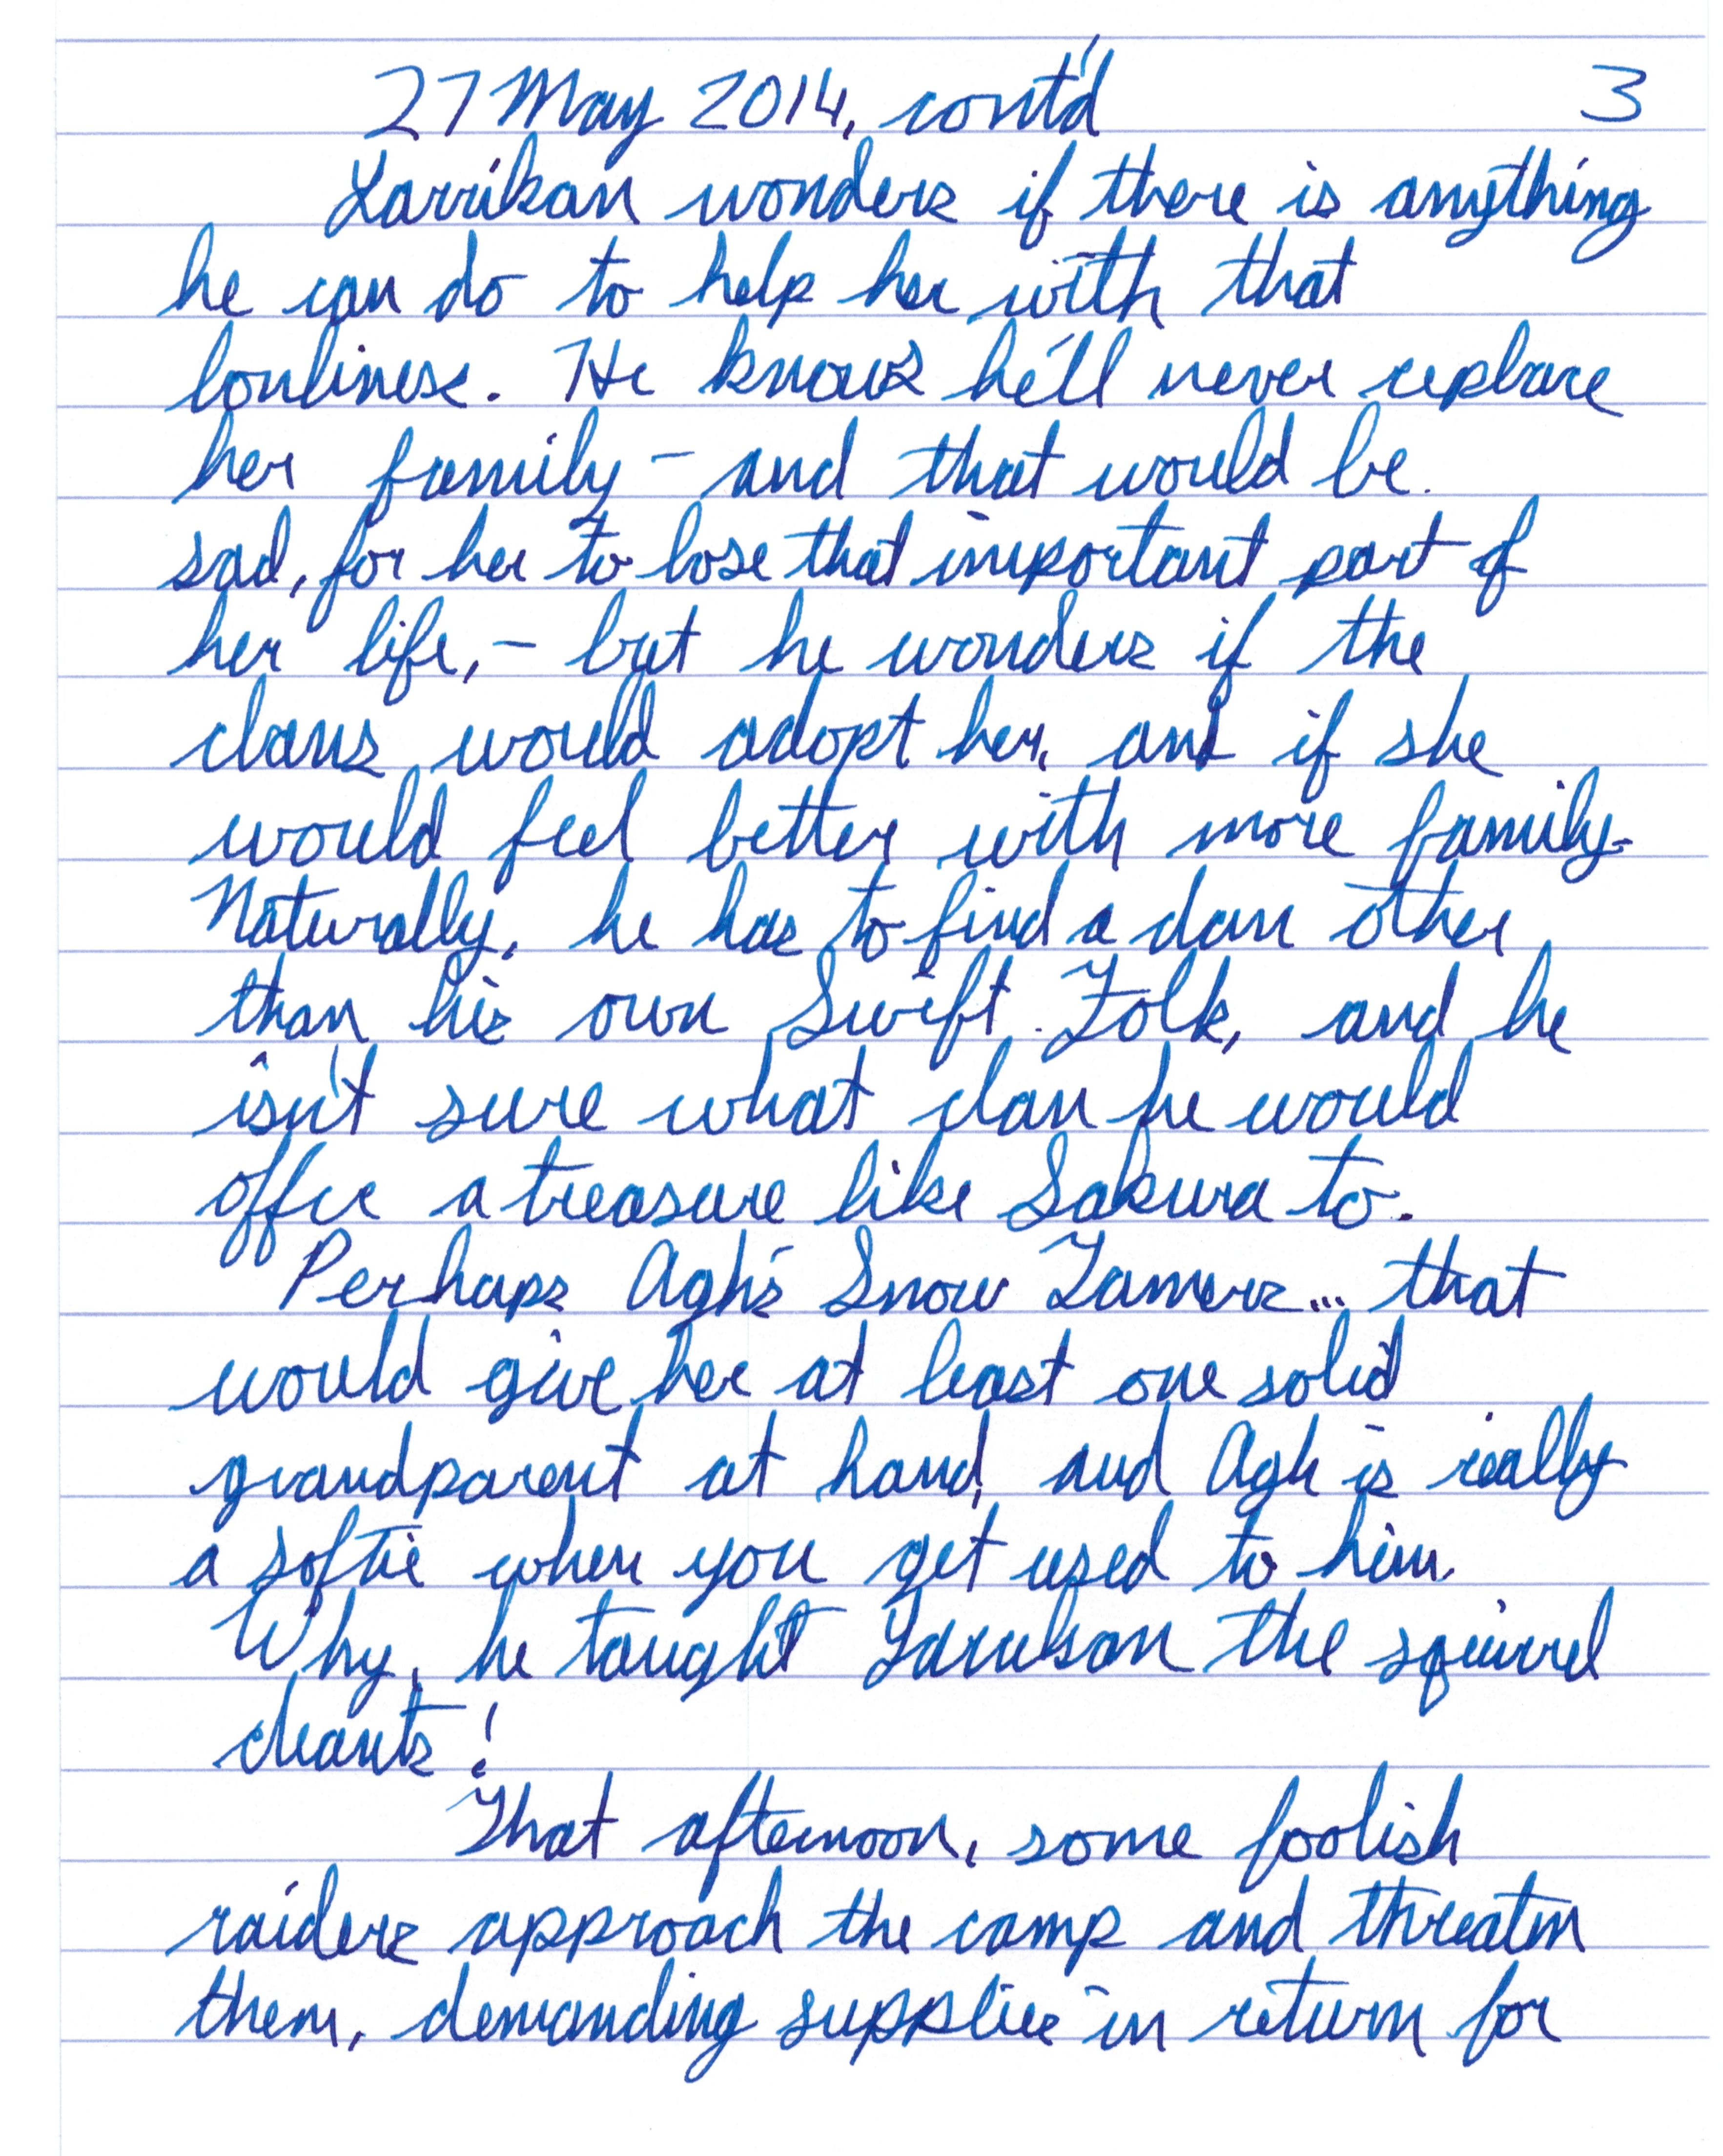 27 May 2014, cont'd 3
Yarrikan wonders if there is anything
he can do to help her with that
lonliness. He knows he'll never replace
her family - and that would be
sad, for her to lose that important part of
her life, - but he wonders if the
clans would adopt her, and if she
would feel better with more family.
Naturally, he has to find a clan other
than his own Swift Folk, and he
isn't sure what clan he would
offer a treasure like Sakura to.
Perhaps Agh's Snow Tamers... that
would give her at least one solid
grandparent at hand, and Agh is really
a softie when you get used to him.
Why, he taught Yarrikan the squirrel
chants!
That afternoon, some foolish
raiders approach the camp and threaten
them, demanding supplies in return for